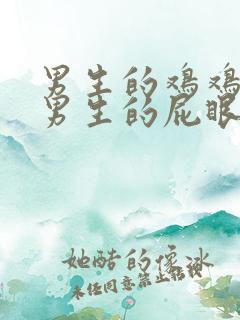 男生的鸡鸡
男生的屁眼
她酷的像冰
未任同意禁止转载